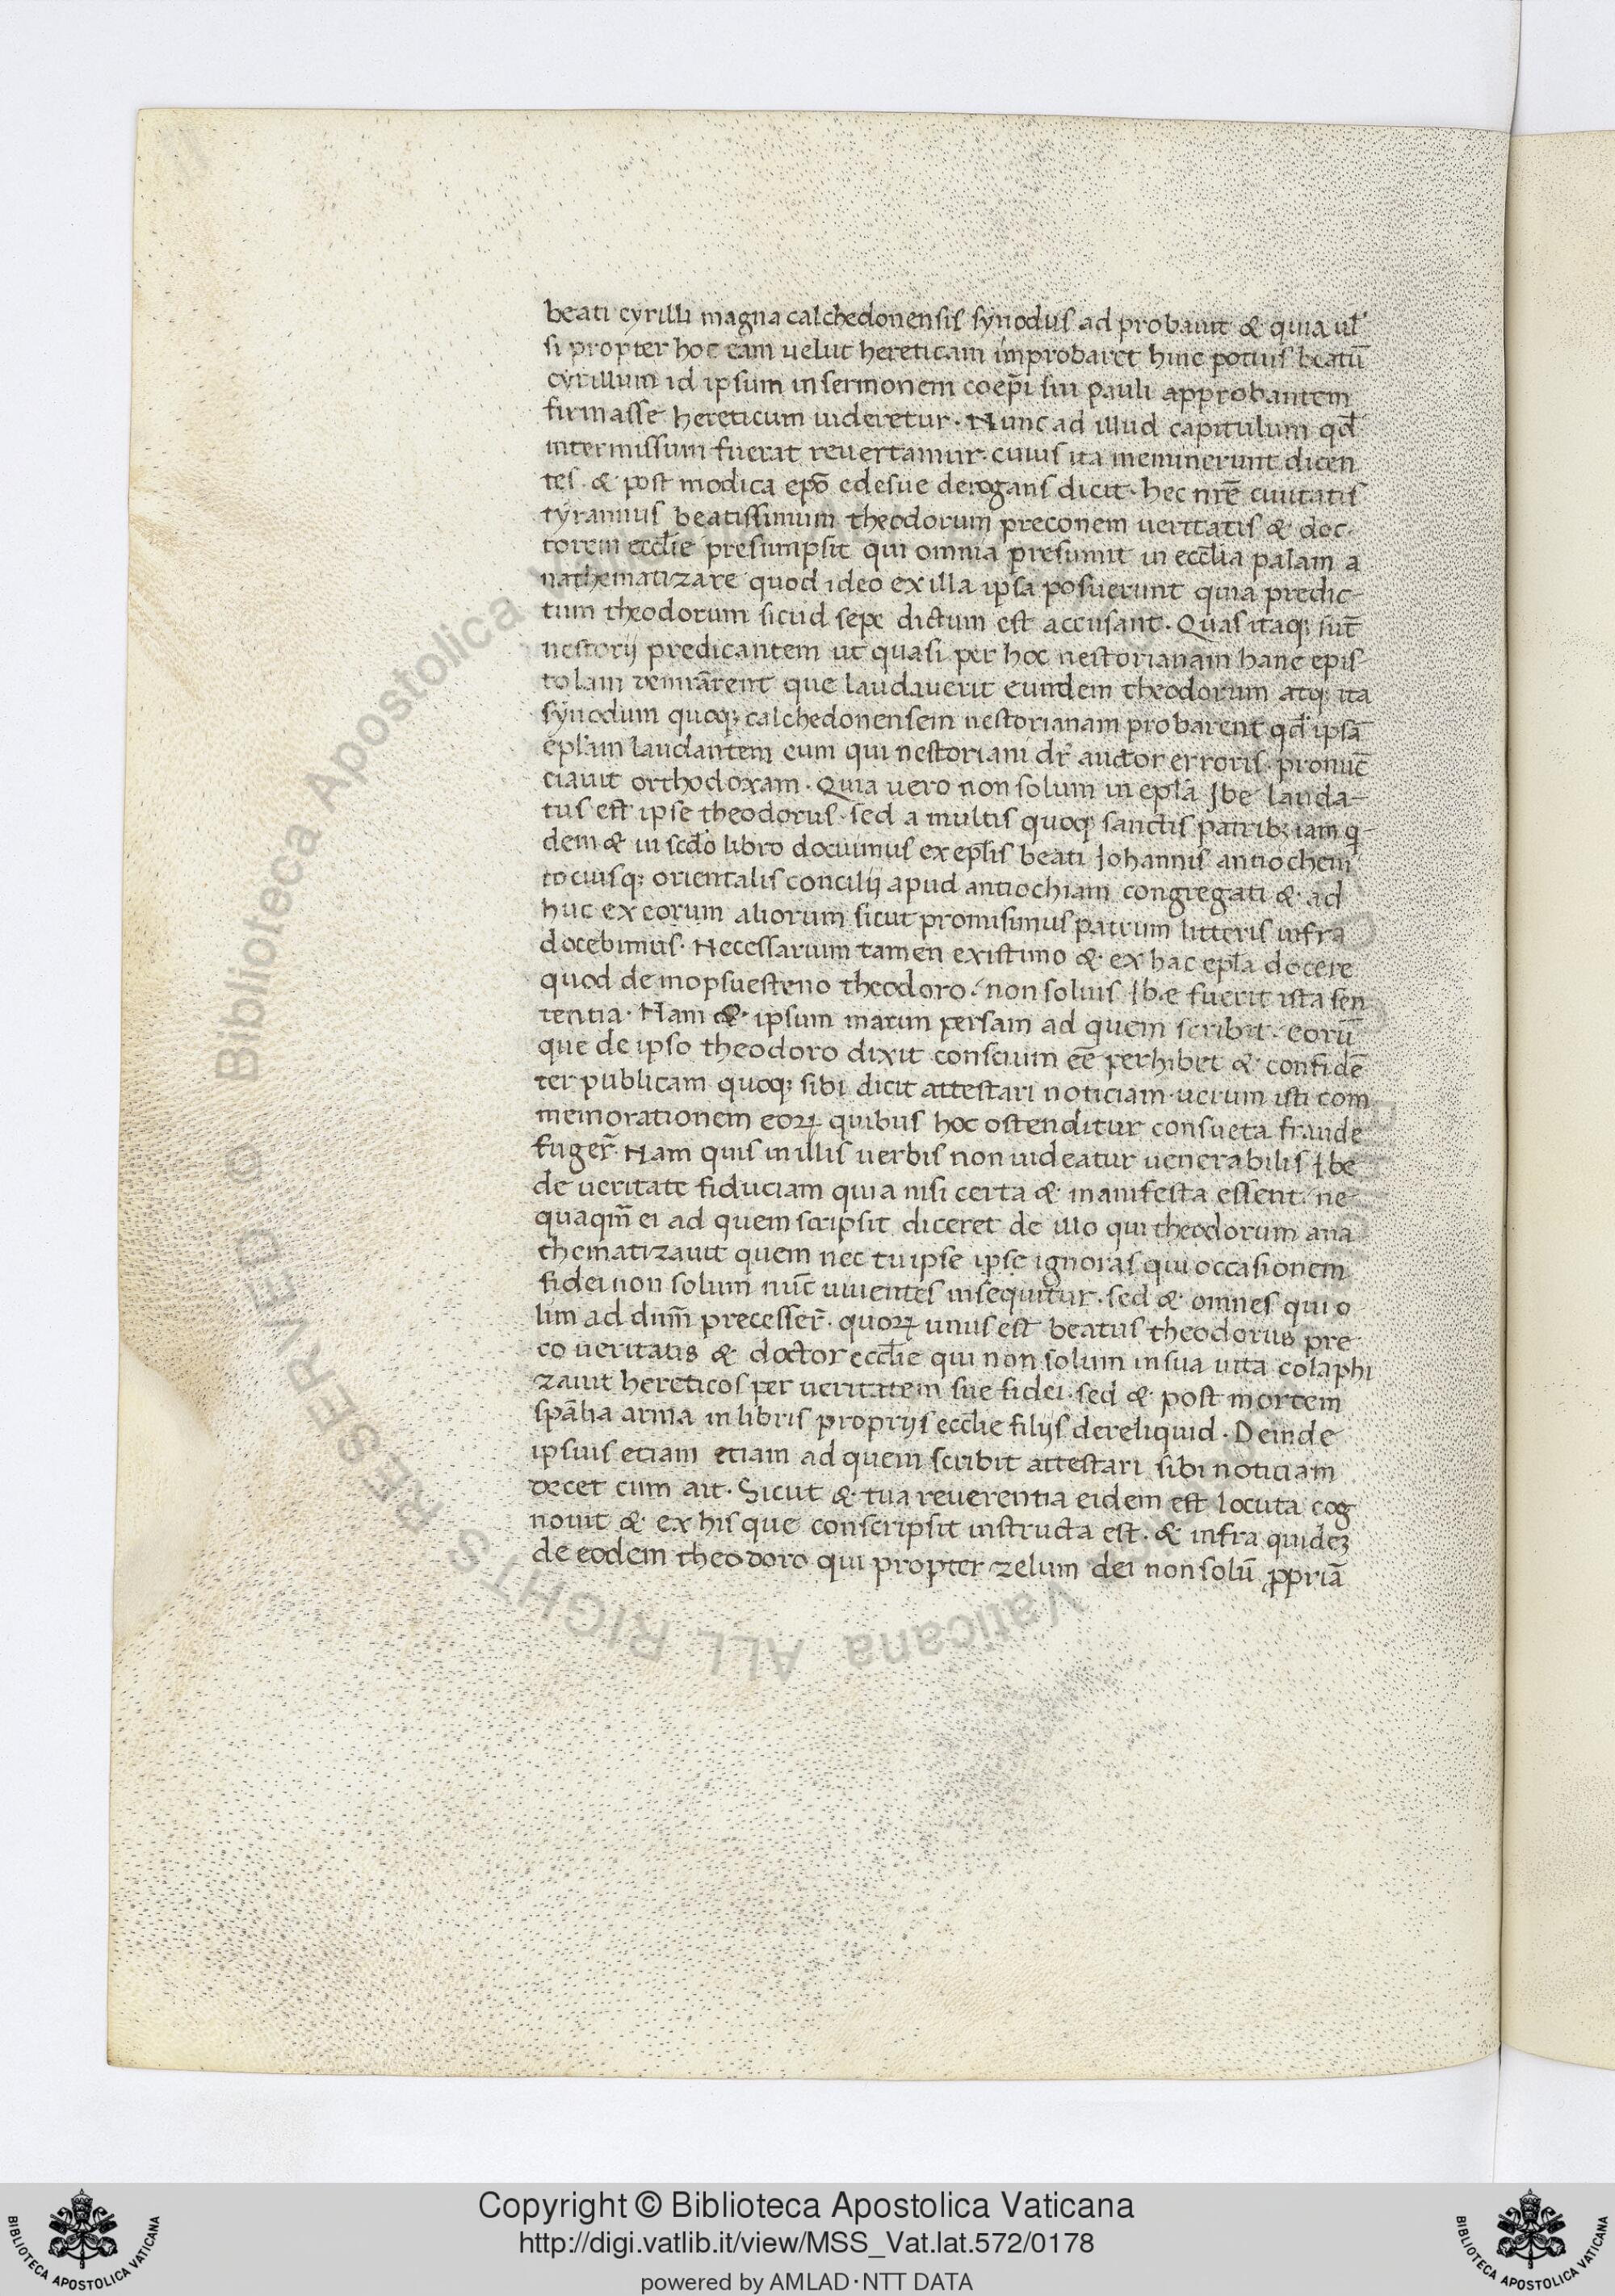 beati cyrilli magna calchedonensis synodus ad probauit & quia ul̄
si propter hoc eam uelut hereticam improbaret hinc potius beatū
cyrillum id ipsum in sermonem coep̄i sui pauli approbantem
firmasse hereticum uideretur · Nunc ad illud capitulum qd̄
intermissum fuerat reuertamur · cuius ita meminerunt dicen
tes · & post modica ep̄o edesue derogans dicit · hec nrē ciuitatis
tyrannus beatissimum theodorum preconem ueritatis & doc-
torem eccl̄ie presumpsit qui omnia presumit in eccl̄ia palam a
nathematizare quod ideo ex illa ipsa posuerunt quia predic-
tum theodorum sicud sepe dictum est accusant · Quas itaqꝫ sūt
nestorij predicantem ut quasi per hoc nestorianam hanc epis
tolam demrārent que laudauerit eundem theodorum atqꝫ ita
synodum quoqꝫ calchedonensem nestorianam probarent qd̄ ipsā
epl̄am laudantem eum qui nestoriani dr̄ auctor erroris · pronūc
ciauit orthodoxam · Quia uero non solum in epl̄a Jbe lauda-
tus est ipse theodorus · sed a multis quoqꝫ sanctis patribꝫ iam q-
dem & in scd̄o libro docuimus ex epl̄is beati Johannis antiocheni
tociusqꝫ orientalis concilij apud antiochiam congregati & ad
huc ex eorum aliorum sicut promisimus patrum litteris infra
docebimus · Necessarium tamen existimo & ex hac epl̄a docere
quod de mopsuesteno theodoro · non solius Jbe fuerit ista sen
tentia · Nam & ipsum marim persam ad quem scribit · eorū
que de ipso theodoro dixit conscium eē perhibet & confidē
ter publicam quoqꝫ sibi dicit attestari noticiam · uerum isti com
memorationem eoꝝ quibus hoc ostenditur consueta fraude
fuger̄ · Nam quis in illis uerbis non uideatur uenerabilis Jbe
de ueritate fiduciam quia nisi certa & manifesta essent · ne
quaqm̄ ei ad quem scripsit diceret de illo qui theodorum ana
thematizauit quem nec tu ipse ipse ignoras qui occasionem
fidei non solum nūc uiuentes insequitur · sed & omnes qui o
lim ad dnm̄ precesser̄ · quoꝝ unus est beatus theodorus pre
co ueritatis & doctor eccl̄ie qui non solum in sua uita colaphi
zauit hereticos per ueritatem sue fidei · sed & post mortem
spālia arma in libris proprijs eccl̄ie filijs dereliquid · Deinde
ipsius etiam etiam ad quem scribit attestari sibi noticiam
decet cum ait · Sicut & tua reuerentia eidem est locuta cog
nouit & ex his que conscripsit instructa est · & infra quideꝫ
de eodem theodoro qui propter zelum dei non solū ꝓpriā
Copyright © Biblioteca Apostolica Vaticana
http://digi.vatlib.it/view/MSS_Vat.lat.572/0178
powered by AMLAD · NTT DATA
BIBLIOTECA APOSTOLICA VATICANA
BIBLIOTECA APOSTOLICA VATICANA